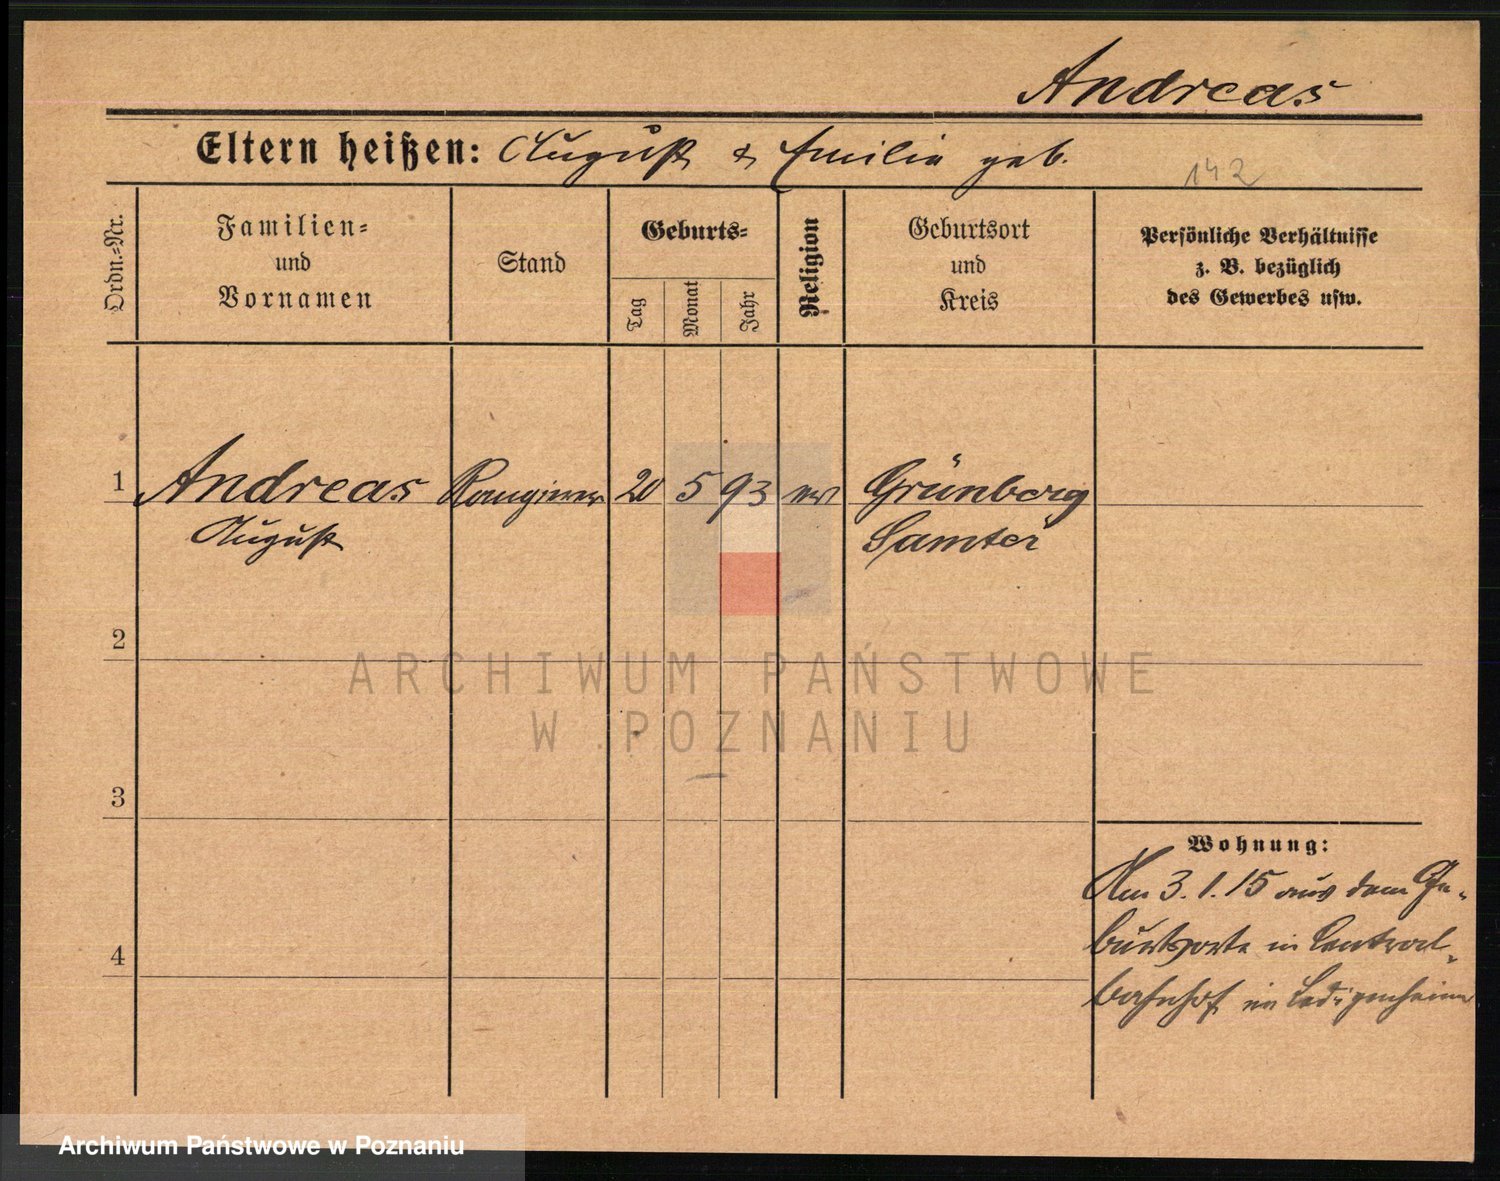 Andreas
Eltern heißen: August & Emilie geb.
142
Ordn.-Nr.
Familien-
und
Vornamen
Stand
Geburts-
Tag
Monat
Jahr
Religion
Geburtsort
und
Kreis
Persönliche Verhältnisse
z. B. bezüglich
des Gewerbes usw.
1 Andreas Rangierer 20 5 93 ev Grünberg
August Samter
2
ARCHIWUM PAŃSTWOWE
W POZNANIU
3
Wohnung:
Am 3.1.15 aus dem Ge-
burtsorte in Central-
4
bahnhof im Ledigenheim
Archiwum Państwowe w Poznaniu